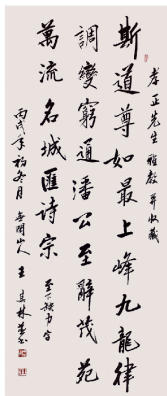 孝正先生雅教并收藏
斯道尊如最上峰九龍律
調變窮通潘公至辭茂苑
萬流名城匯詩宗
丙戌年初冬月
王其林書